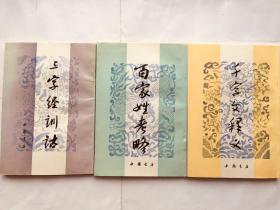 三字经训诂
百家姓考略
中国书店
千字文释义
中国书店